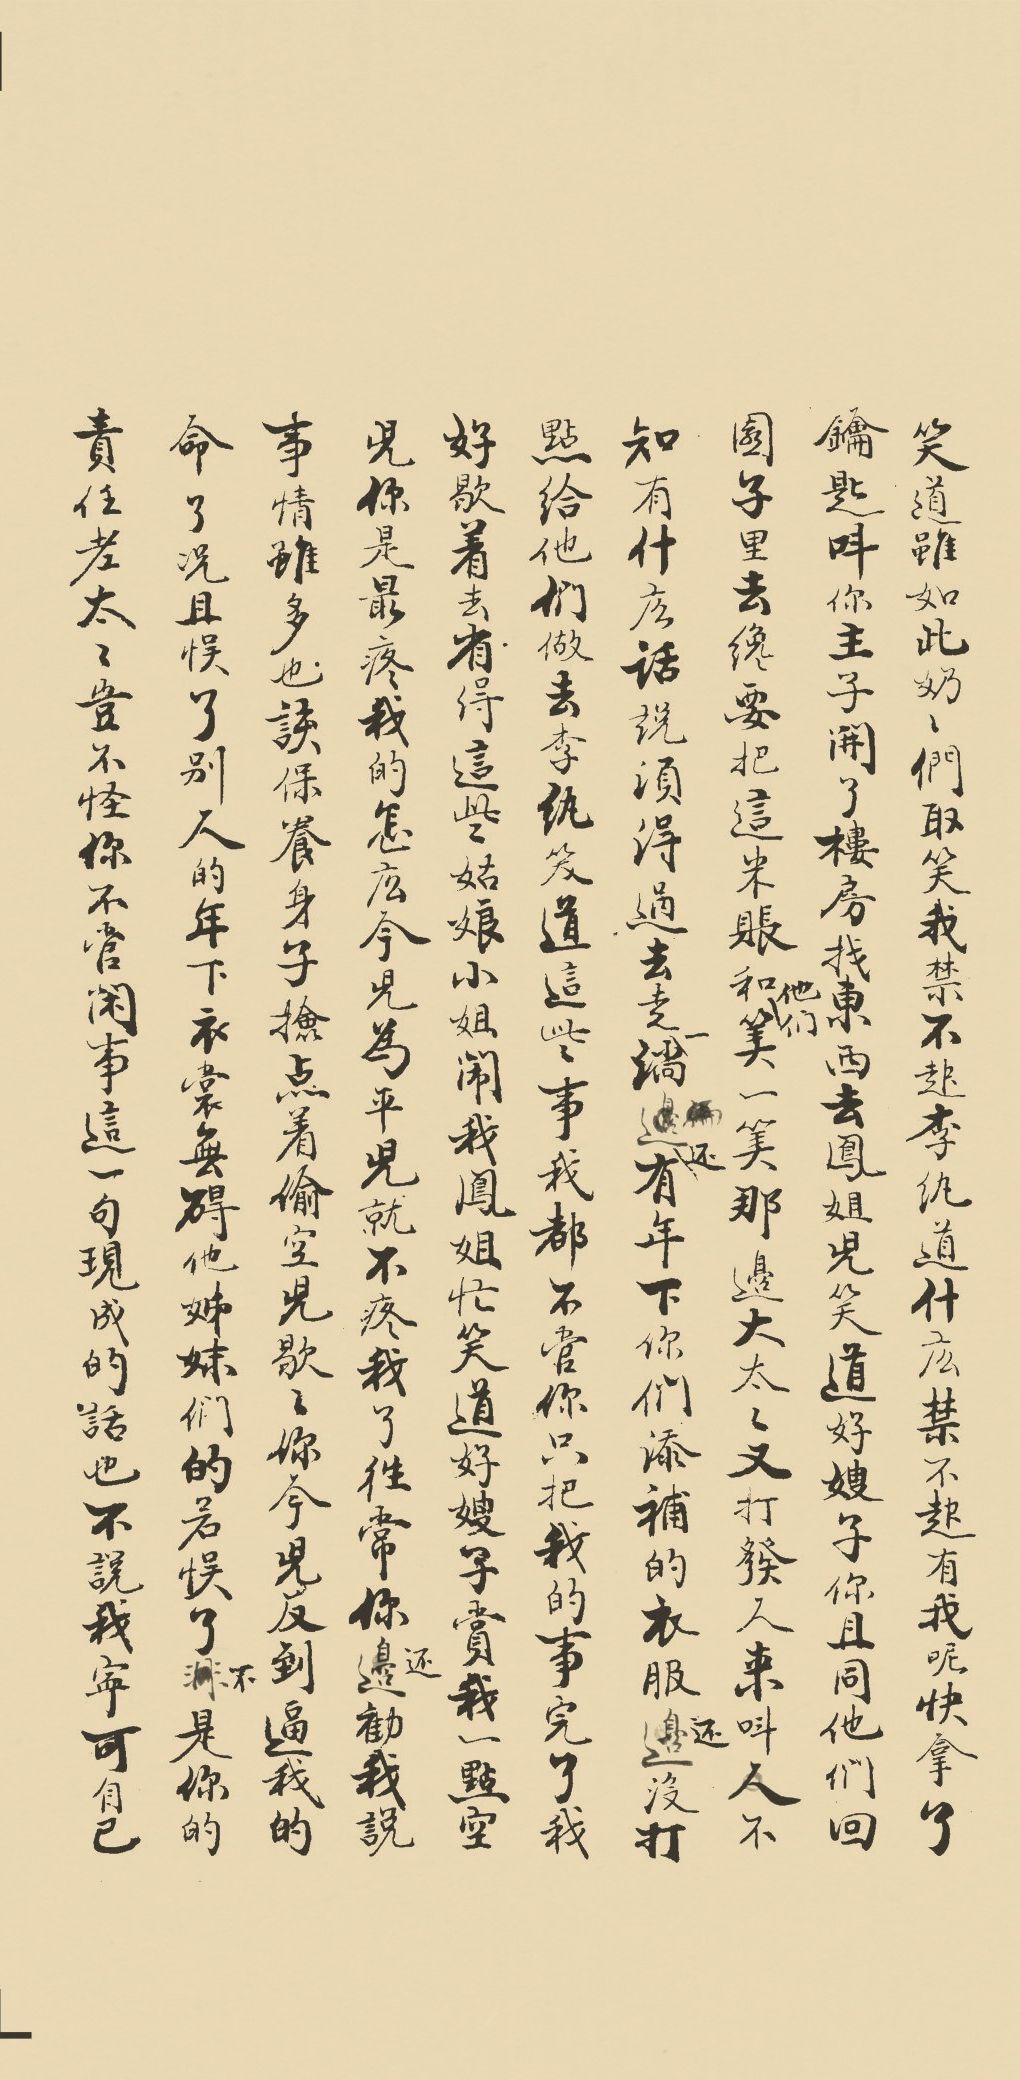 笑道雖如此奶〻們取笑我禁不起李紈道什広禁不起有我呢快拿了
鑰匙叫你主子開了樓房找東西去鳳姐児笑道好嫂子你且同他們回
園子里去纔要把這米賬和他们筭一筭那邊大太〻又打發人来叫人不
知有什広話説須得過去走一𫏋还有年下你們添補的衣服还没打
點給他們做去李紈笑道這些事我都不管你只把我的事完了我
好歇着去省得這些姑娘小姐鬧我鳳姐忙笑道好嫂子賞我一點空
児你是最疼我的怎広今児為平児就不疼我了徃常你还勸我説
事情雖多也該保養身子撿点着偷空児歇〻你今児反到逼我的
命了况且悞了别人的年下衣裳無碍他姊妹們的若悞了不是你的
責任老太〻豈不怪你不管閑事這一句現成的話也不説我寕可自己